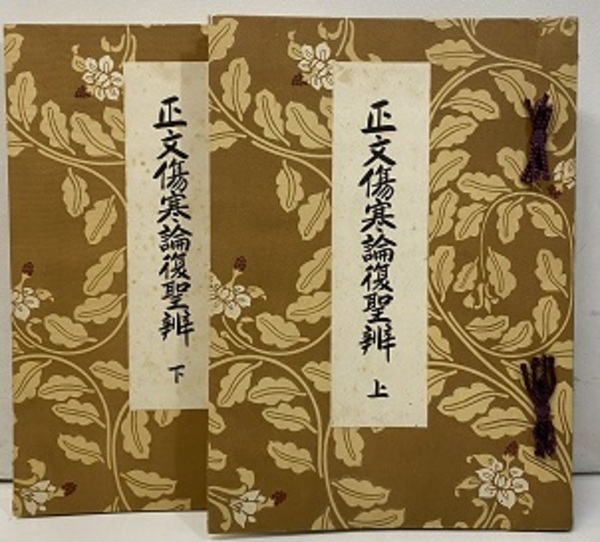 正文傷寒論復聖辨 上
正文傷寒論復聖辨 下